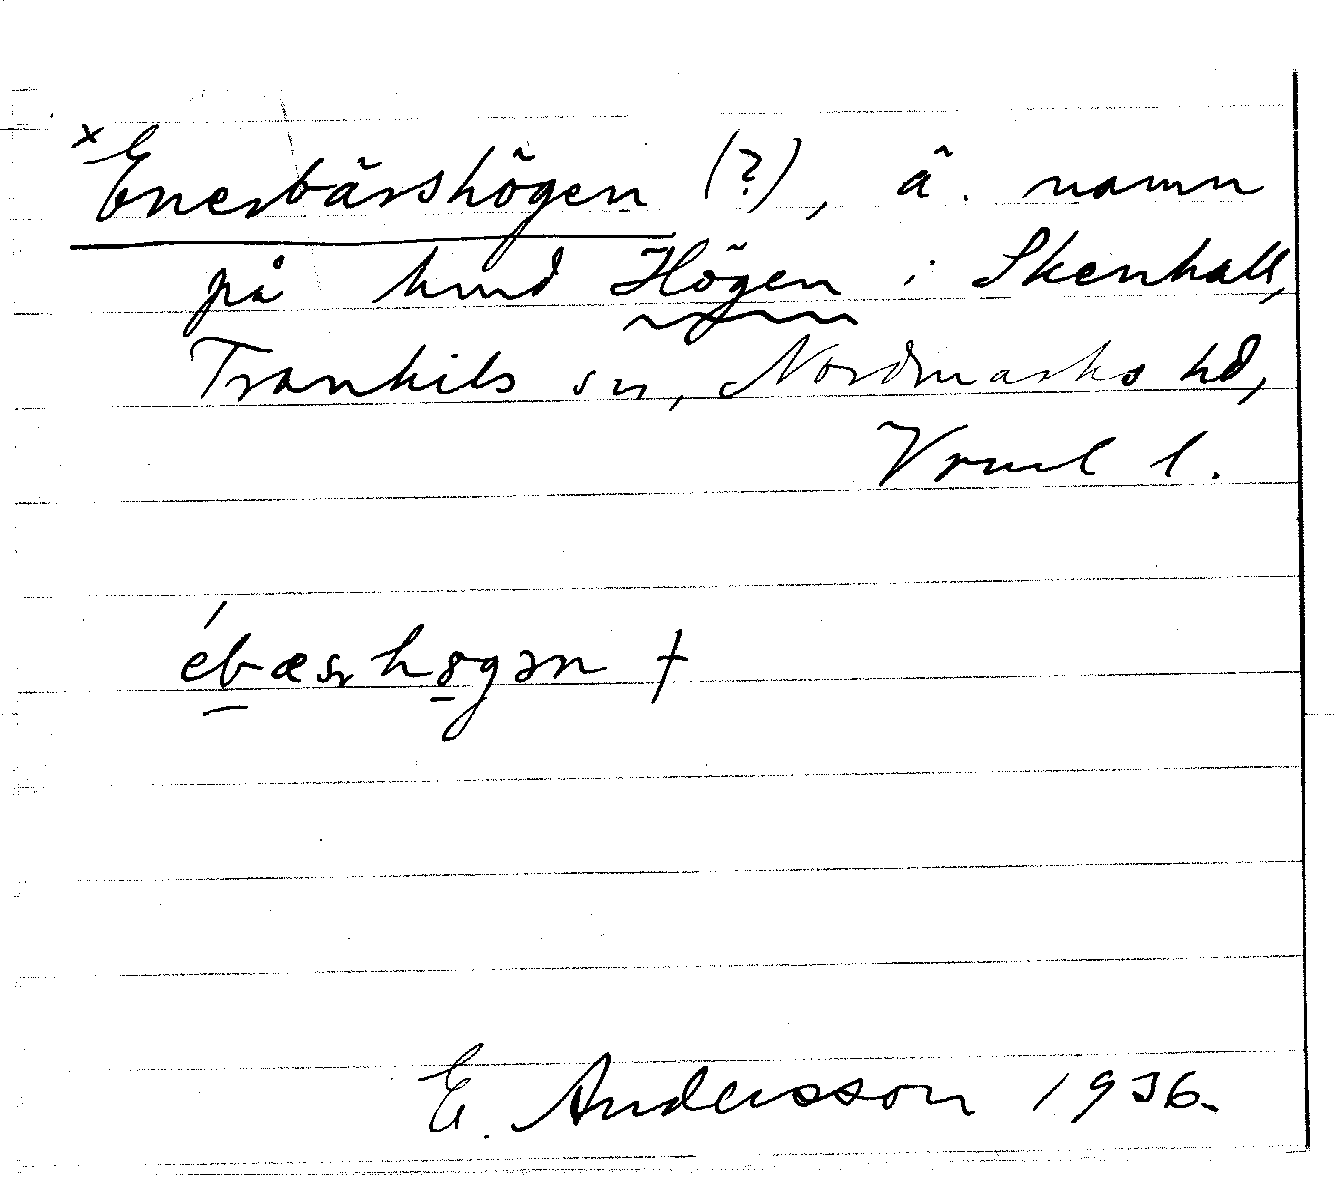 × Enerbärshögen (?), ä. namn
på hmd Högen i Skenhall,
Trankils sn, Nordmarks hd,
Vrml l.
ébæsrhøgən †
E. Andersson 1936.